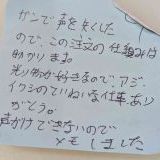 ガンで声を失くした
ので、この注文の仕組みは
助かります。
光り物が好きなので、アジ、
イワシのていねいな仕事あり
がとう。
声かけできないので
メモしました